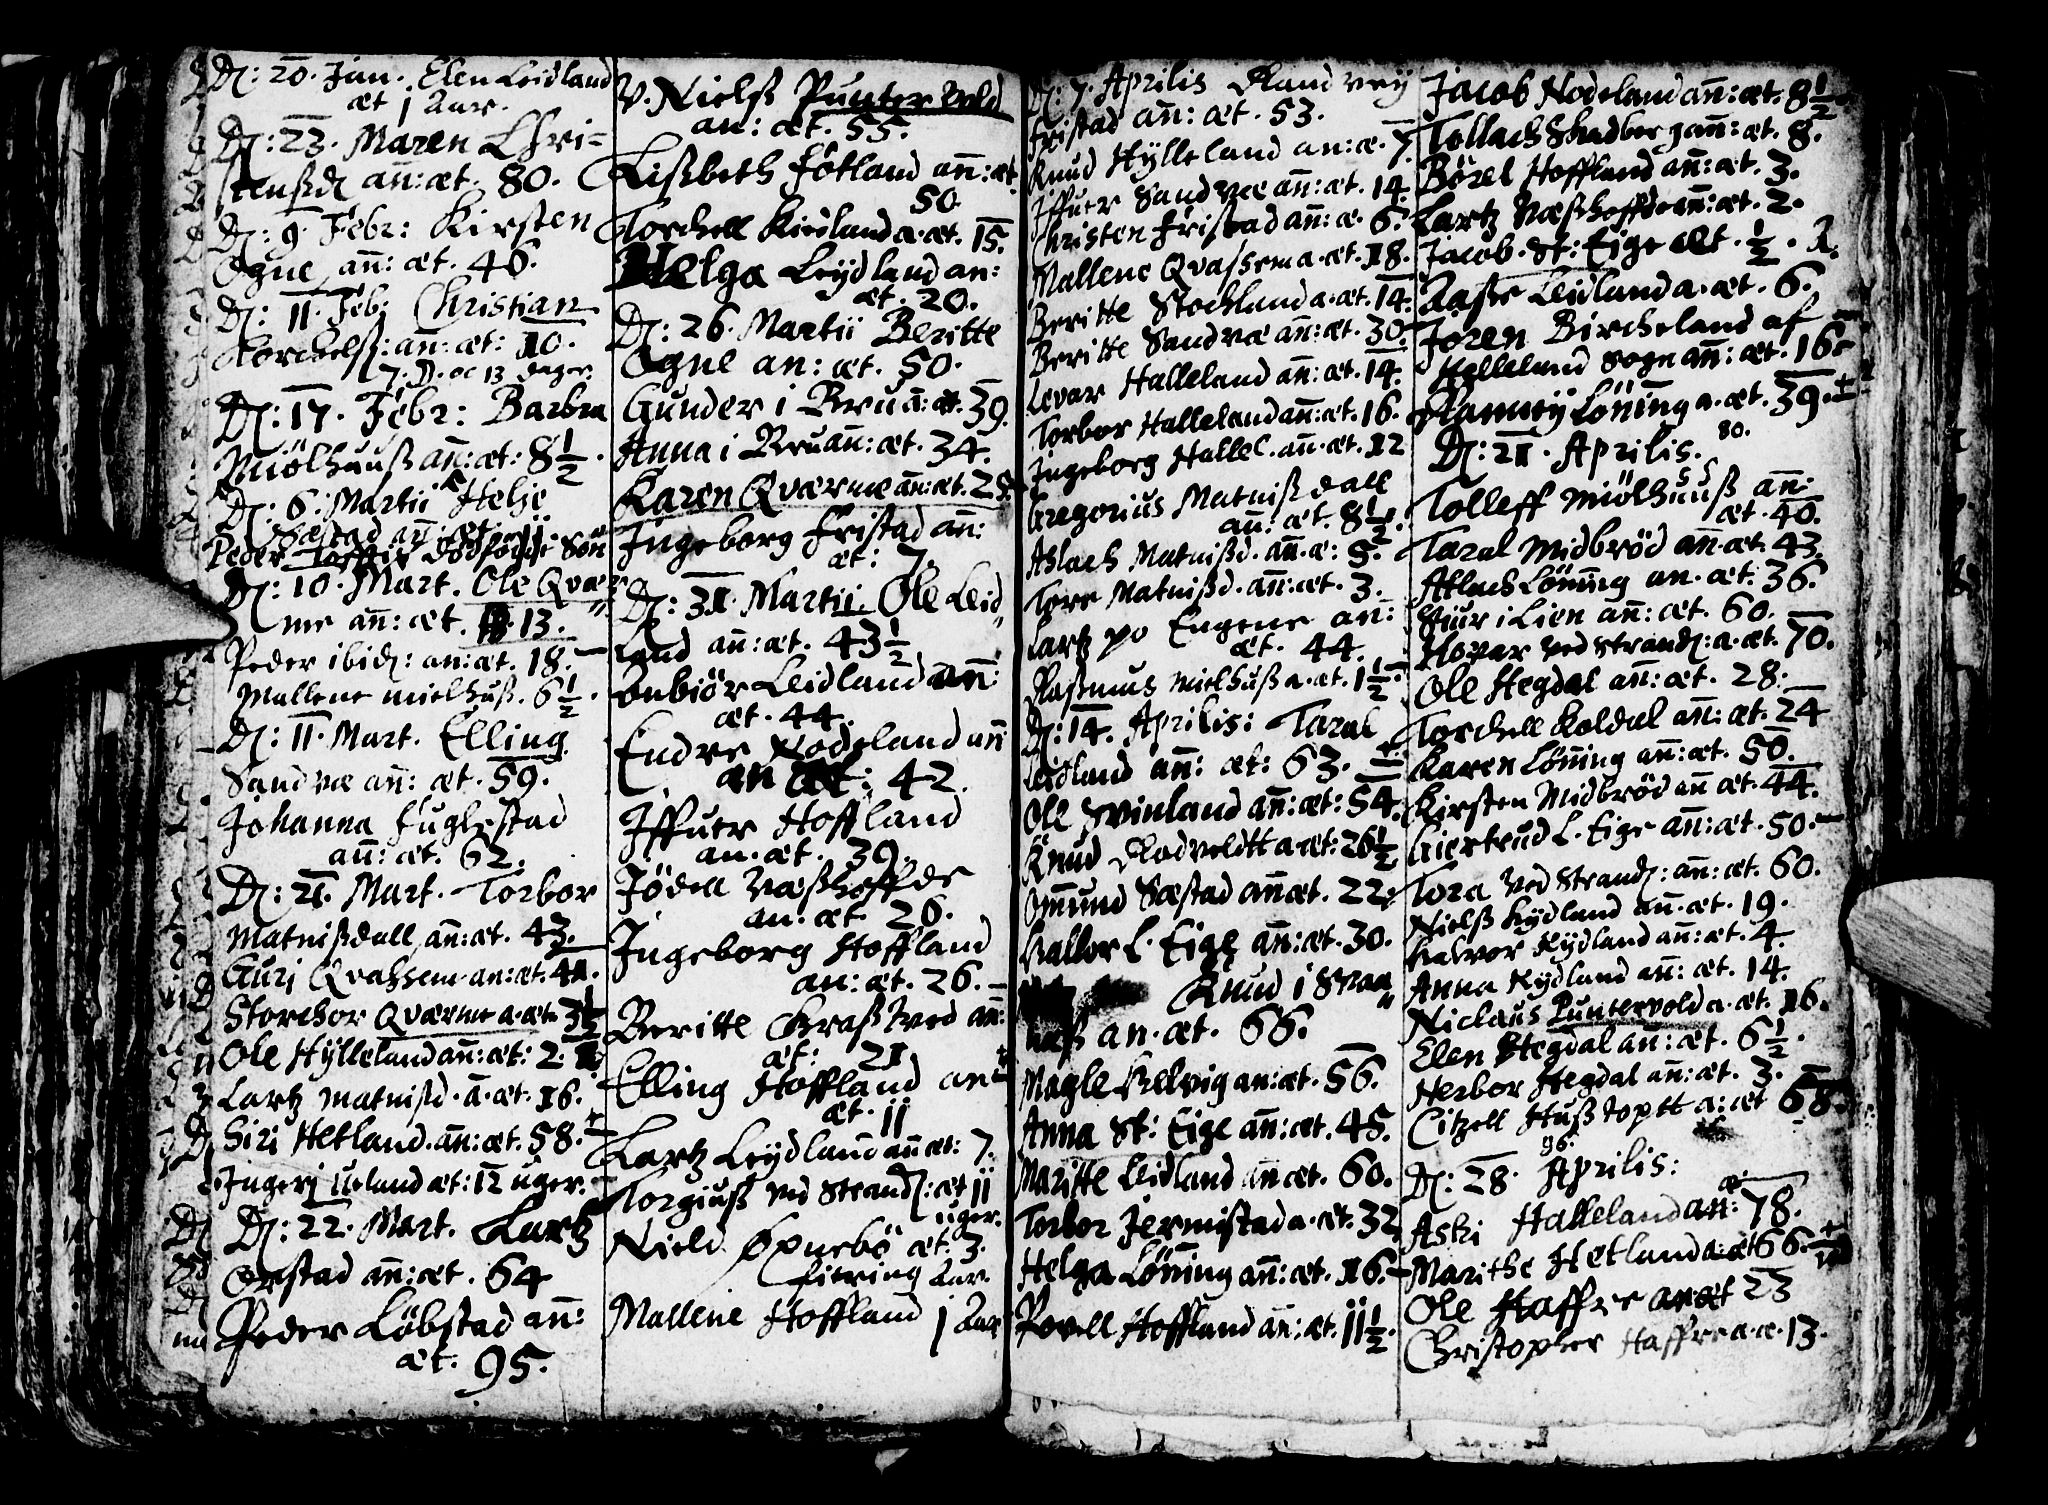 D: 20. Jan. Elen Leidland
æt 1 Aar.
D: 23. Maren Chri-
stensd añ: æt. 80.
D: 9. Febr: Kirsten
Ogne añ: æt. 46.
D: 11. Feb: Christian
Torchelß: añ: æt: 10.
7. D. oc 13 dager.
D: 17. Febr: Barbra
Miölhuuß añ: æt: 8½.
D: 6: Martii Helje
Sæstad añ: æt:
Peder dödfödde Sön
D: 10. Mart. Ole Qvær
me añ: æt. 13.
Peder ibid: an: æt. 18.
Mallene mielhuß. 6½.
D: 11. Mart. Elling
Sandvæ añ: æt. 59.
Johanna Fuglestad
añ: æt. 62.
D: 21. Mart. Torbor
Matnißdall añ: æt. 43.
Guri Qvassem an: æt. 41.
Storchor Qværme a. æt. 3½
Ole Hÿlleland añ: æt: 2.
Lartz matnißd. a. æt. 16.
Siri Hetland. añ: æt. 58.
Ingerj Ueland æt: 12 uger.
D: 22. Mart. Lartz
Orstad añ: æt. 64
Peder Löbstad añ:
æt: 95.
V. Nielß Puntervold
an: æt. 55.
Lißbeth Fötland añ: æt.
50
Torchell Kiedland a. æt. 15.
Helga Leÿdland an:
æt. 20.
D: 26. Martii Beritte
Ogne an: æt. 50.
Gunder i Bru añ: æt. 39.
Anna i Bru añ: æt. 34.
Karen Qværme añ: æt. 28.
Ingeborg Fristad añ:
æt: 7.
D: 31. Martii. Ole Leid
land añ: æt. 43½
Önbiör Leidland añ:
æt. 44.
Endre Nodeland añ
an æt: 42.
Iffuer Hoffland
an. æt. 39.
Jödell Væßhoffde
an: æt 26.
Ingeborg Hoffland
an: æt. 26.
Beritte Kraßtved an:
æt: 21
Elling Hoffland an
æt. 11
Lartz Leÿdland añ æt: 7.
Torgiuß ved Strand: æt 11
uger.
Nield Öpnebö æt: 3.
fiering Aar.
Mallene Hoffland 1 Aar
D: 7. Aprilis Randveÿ
Fristad añ: æt. 53.
Knud Hÿlleland an: æ. 7.
Iffuer Sandvæ añ: æt. 14.
Christen Fristad añ: æ. 6.
Mallene Qvassem a. æt. 18.
Beritte Stochland a. æt. 14.
Beritte Sandvæ añ: æt. 30.
Levar Halleland añ: æt. 14.
Torbor Halleland añ: æt. 16.
Ingeborg Hallel. añ. æt. 12
Gregorius Matnißdall
añ: æt. 8½.
Aslach Matnißd. añ. æ: 5.
Tore Matnißd. añ: æt. 3.
Lartz po Engene an:
æt. 44.
Raßmus Mielhuß a. æt. 1½
D: 14. Aprilis: Taral
Leidland añ: æt: 63.
Ole Svinland añ: æt: 54.
Knud Rodveldtt a æt: 26½
Omund Sæstad añ æt. 22.
Hallvor L. Eige añ: æt. 30.
Knud i Svaa
næß an. æt. 66.
Magle Helvig an: æt. 56.
Anna St: Eige añ: æt. 45.
Maritte Leidland añ æt. 60.
Torbor Jermistad a. æt. 32
Helga Löning añ: æt. 16.
Povell Hoffland añ: æt. 11½.
Jacob Nodeland añ: æt. 8½
Tollach Skadberg añ: æt. 8.
Börel Hoffland añ: æt. 3.
Lartz Væßhoffde añ: æt. 2.
Jacob. St: Eige æt. ½.
Aaße Leidland a. æt. 6.
Joren Bircheland af
Helleland Sogn añ: æt. 16
Ranneÿ Löning a. æt. 39.
80.
D: 21. Aprilis.
Tolleff Miölhuuß añ:
æt. 40.
Taral Midbröd añ. æt. 43.
Atlach Löning an. æt. 36.
Siur i Lien añ: æt. 60.
Hovar ved Strand: a. æt. 70.
Ole Hegdal añ: æt. 28.
Torchell Koldal añ: æt. 24
Karen Löning añ: æt. 50.
Kirsten Midbröd añ æt. 44.
Giertrud L. Eige añ: æt. 50.
Tora ved Strand: añ: æt. 60.
Nielß Kÿdland añ: æt. 19.
Halvor Kÿdland añ: æt. 4.
Anna Kydland añ: æt. 14.
Niclaus Puntervold a. æt. 16.
Elen Hegdal añ: æt. 6½.
Herbor Hegdal añ: æt. 3.
Citzell Hußtoptt a: æt 68.
96.
D: 28. Aprilis:
Aski Halleland añ: 78.
Marithe Hetland a: æt 66.
Ole Haffre an æt 23
Christopher Haffre a. æ. 13.